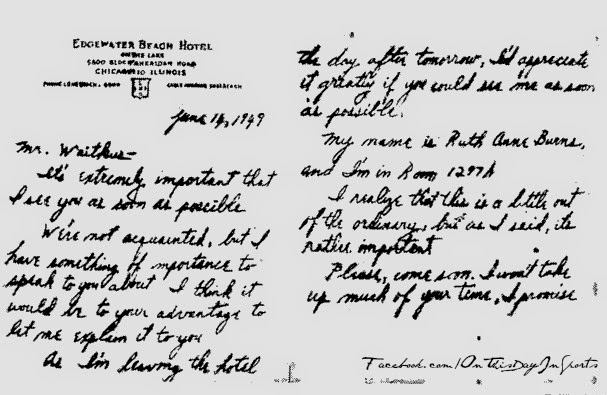 EDGEWATER BEACH HOTEL
ON THE LAKE
5300 BLOCK SHERIDAN ROAD
CHICAGO ILLINOIS
June 14, 1949
Mr. Waitkus—
It's extremely important that
I see you as soon as possible
We're not acquainted, but I
have something of importance to
speak to you about I think it
would be to your advantage to
let me explain it to you
As I'm leaving the hotel
the day after tomorrow, I'd appreciate
it greatly if you could see me as soon
as possible.
My name is Ruth Anne Burns,
and I'm in Room 1297A
I realize that this is a little out
of the ordinary, but as I said, its
rather important
Please, come soon. I won't take
up much of your time, I promise
Facebook.com/OnThisDayInSports